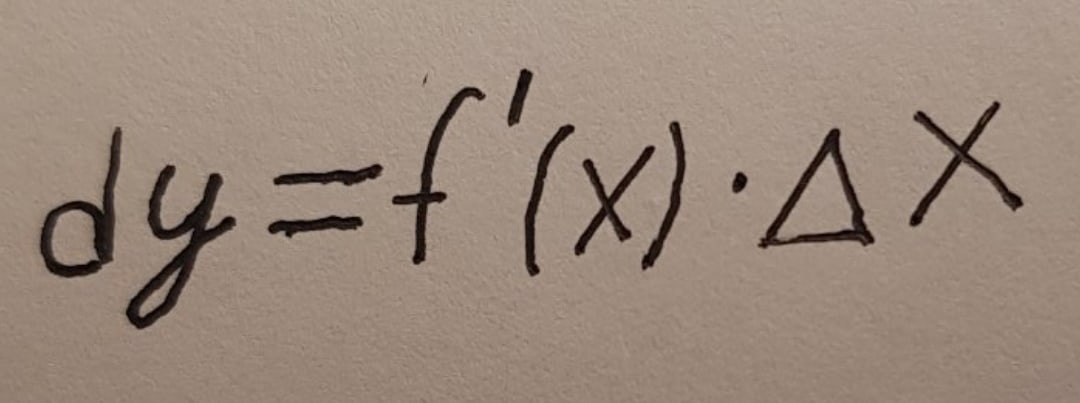 dy=f'(x)·Δx